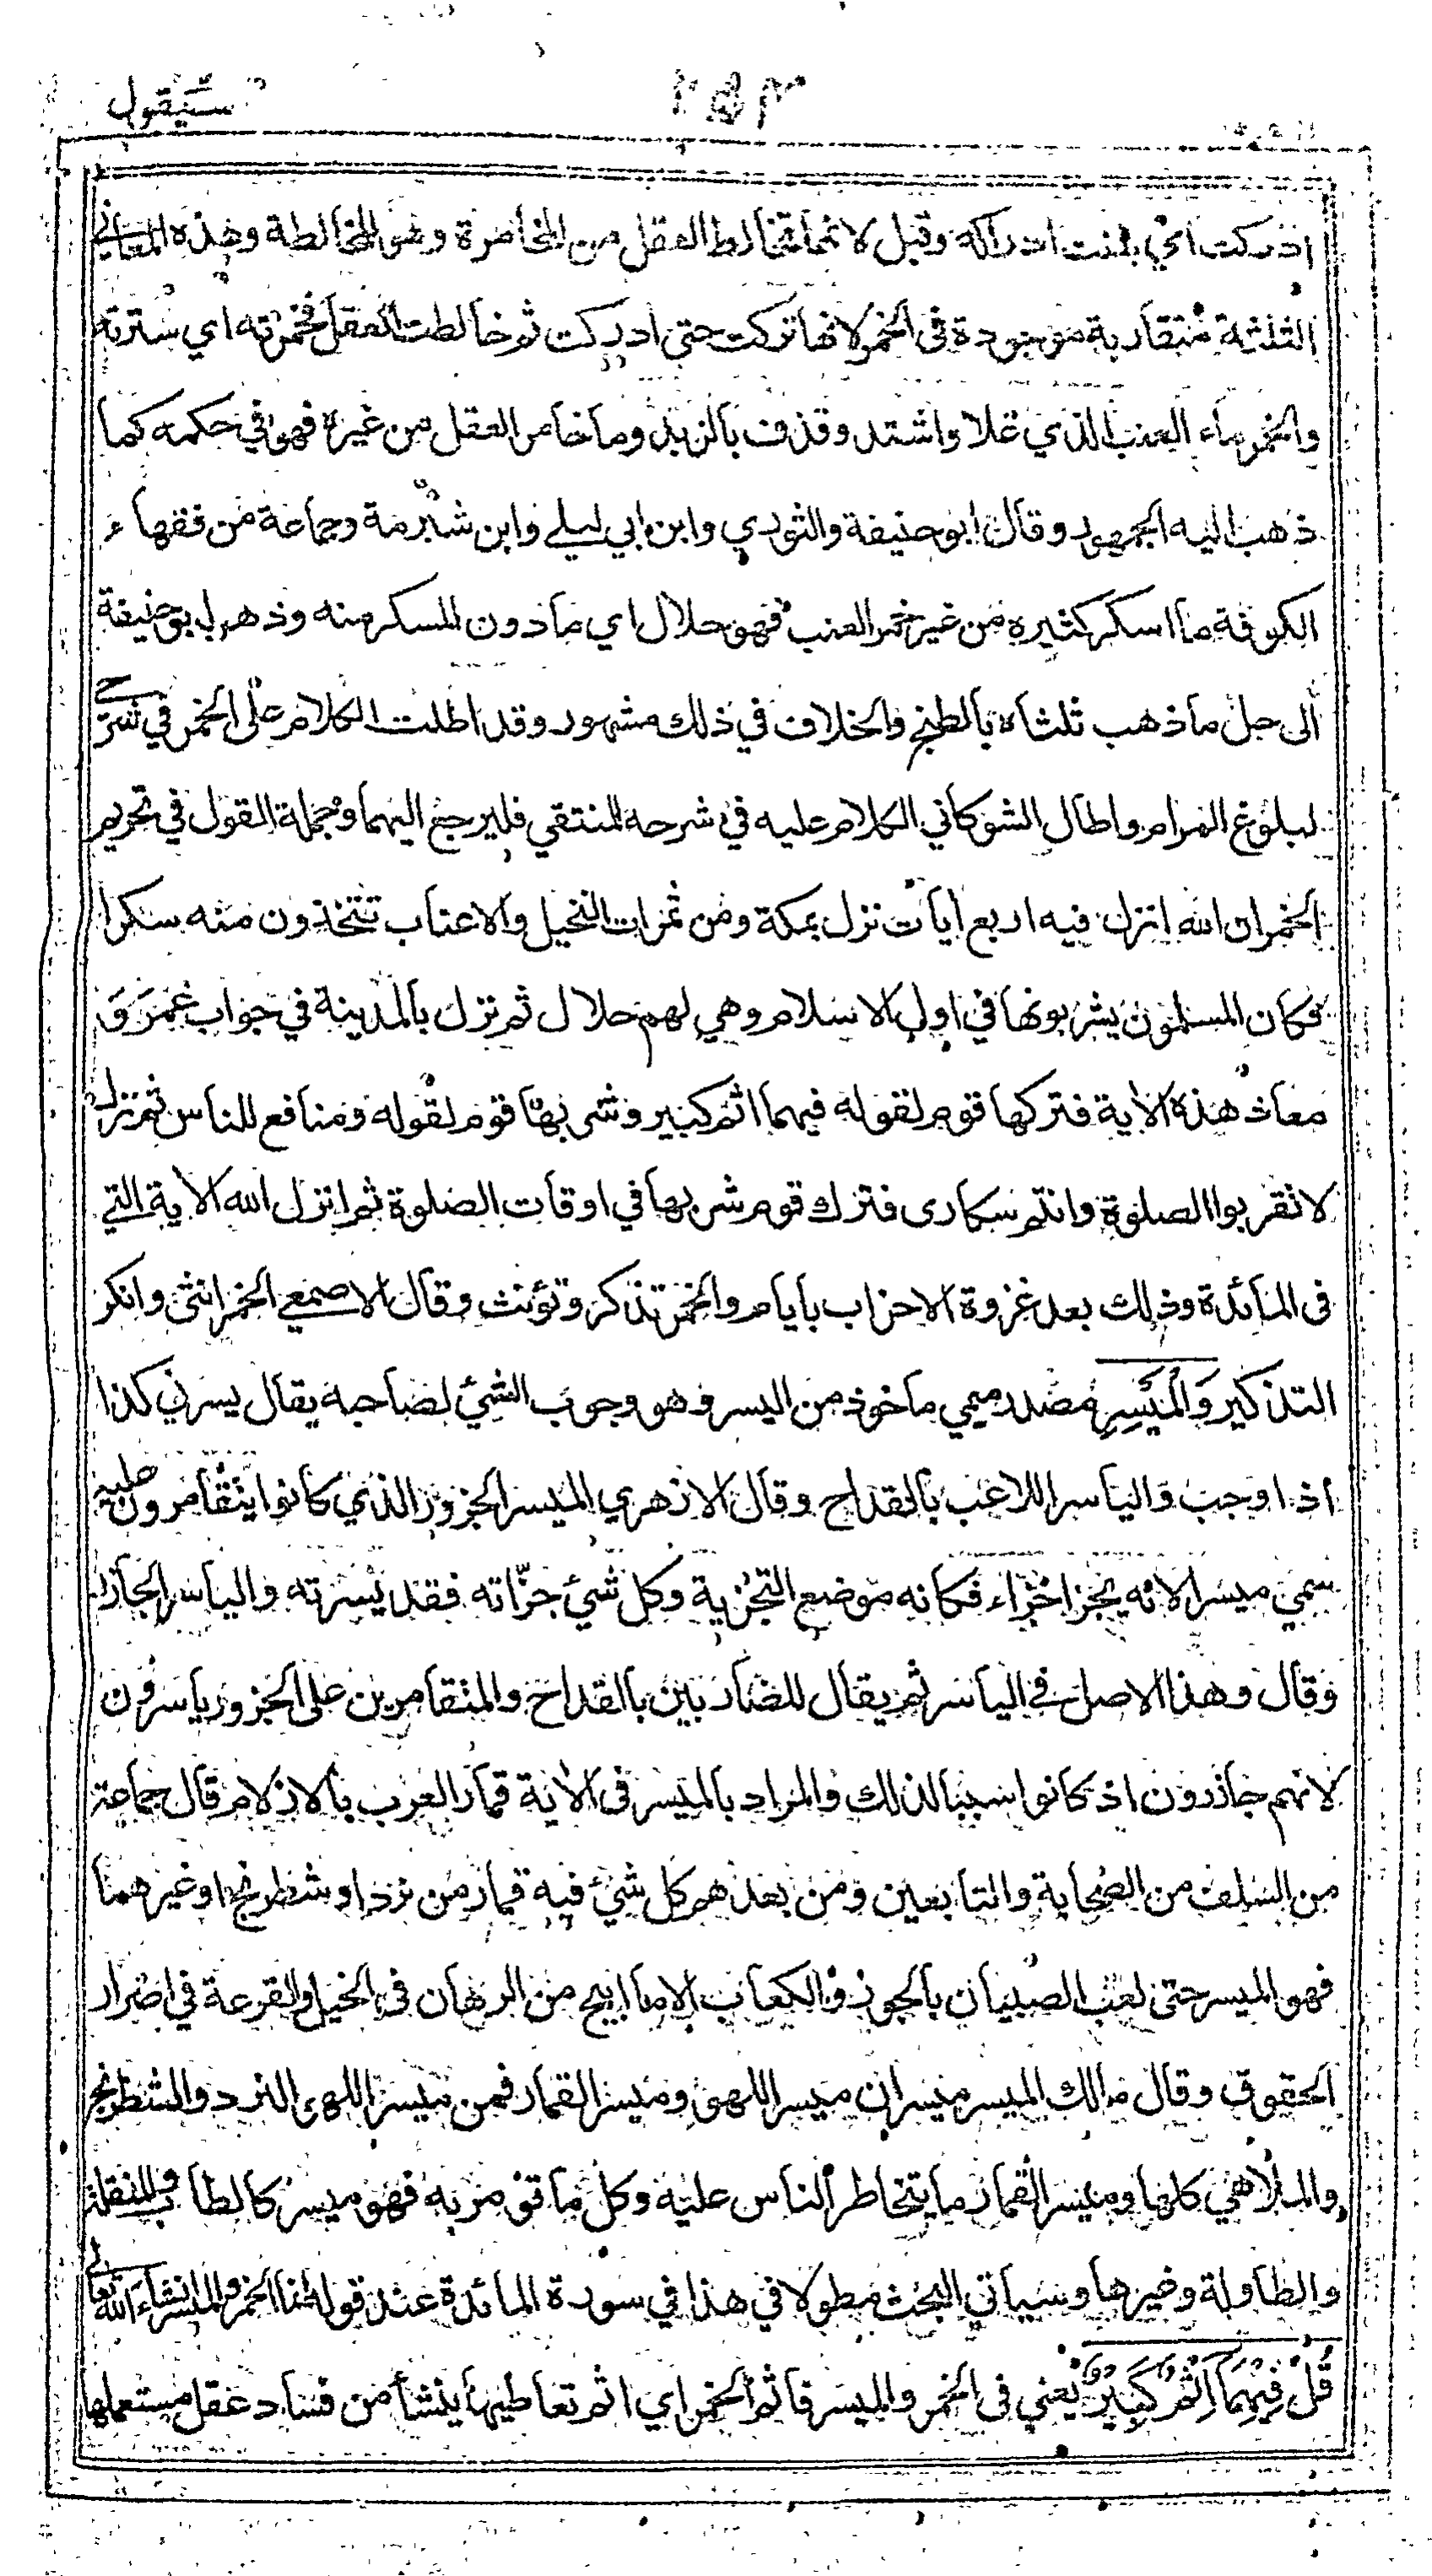 سيقول
٢٥٣
ادركت اي بلغت ادراكه وقيل لانها تخالط العقل من المخامرة وهي المخالطة وهذه المعاني
الثلثة متقاربة موجودة فى الخمر لانها تركت حتى ادركت ثم خالطت العقل فخمرته اي سترته
والخمر ماء العنب الذي غلا واشتد وقذف بالزبد وما خامر العقل من غيره فهو في حكمه كما
ذهب اليه الجمهور وقال ابو حنيفة والثوري وابن ابي ليلى وابن شبرمة وجماعة من فقهاء
الكوفة ما اسكر كثيره من غير خمر العنب فهو حلال اي ما دون المسكر منه وذهب ابو حنيفة
الى حل ما ذهب ثلثاه بالطبخ والخلاف في ذلك مشهور وقد اطلت الكلام على الخمر في شرحي
لبلوغ المرام واطال الشوكاني الكلام عليه في شرحه للمنتقي فليرجع اليهما وجملة القول في تحريم
الخمر ان الله انزل فيه اربع ايات نزل بمكة ومن ثمرات النخيل والاعناب تتخذون منه سكرا
فكان المسلمون يشربونها في اول الاسلام وهي لهم حلال ثم نزل بالمدينة في جواب عمر و
معاذ هذه الاية فتركها قوم لقوله فيهما اثم كبير وشربها قوم لقوله ومنافع للناس ثم نزل
لا تقربوا الصلوة وانتم سكارى فترك قوم شربها في اوقات الصلوة ثم انزل الله الاية التي
فى المائدة وذلك بعد غزوة الاحزاب بايام والخمر تذكر وتؤنث وقال الاصمعي الخمر انثى وانكر
التذكير وَالْمَيْسِرِ مصدر ميمي ماخوذ من اليسر وهو وجوب الشيء لصاحبه يقال يسر لي كذا
اذا وجب والياسر اللاعب بالقداح وقال الازهري الميسر الجزور الذي كانوا يتقامرون عليه
سمي ميسرا لانه يجزأ اجزاء فكانه موضع التجزية وكل شيء جزّاته فقد يسرته والياسر الجازر
وقال وهذا الاصل في الياسر ثم يقال للضاربين بالقداح والمتقامرين على الجزور ياسرون
لانهم جازرون اذ كانوا سببا لذلك والمراد بالميسر فى الاية قمار العرب بالازلام قال جماعة
من السلف من الصحابة والتابعين ومن بعدهم كل شيء فيه قمار من نرد او شطرنج او غيرهما
فهو الميسر حتى لعب الصبيان بالجوز والكعاب الا ما ابيح من الرهان فى الخيل والقرعة في افراز
الحقوق وقال مالك الميسر ميسران ميسر اللهو وميسر القمار فمن ميسر اللهو النرد والشطرنج
والملاهي كلها وميسر القمار ما يتخاطر الناس عليه وكل ما قومر به فهو ميسر كالطاب والمنقلة
والطاولة وغيرها وسياتي البحث مطولا في هذا في سورة المائدة عند قوله انما الخمر والميسر انشاء الله تعالى
قُلْ فِيهِمَا اِثْمٌ كَبِيرٌ يعني فى الخمر والميسر فاثم الخمر اي اثم تعاطيها ينشأ من فساد عقل مستعملها